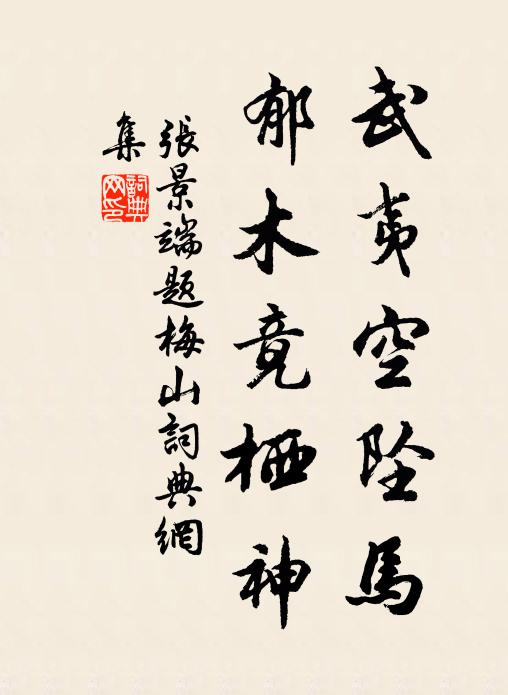 武夷空墜馬
郁木竟栖神
張景端題梅山詞典網
集
詞典
網印